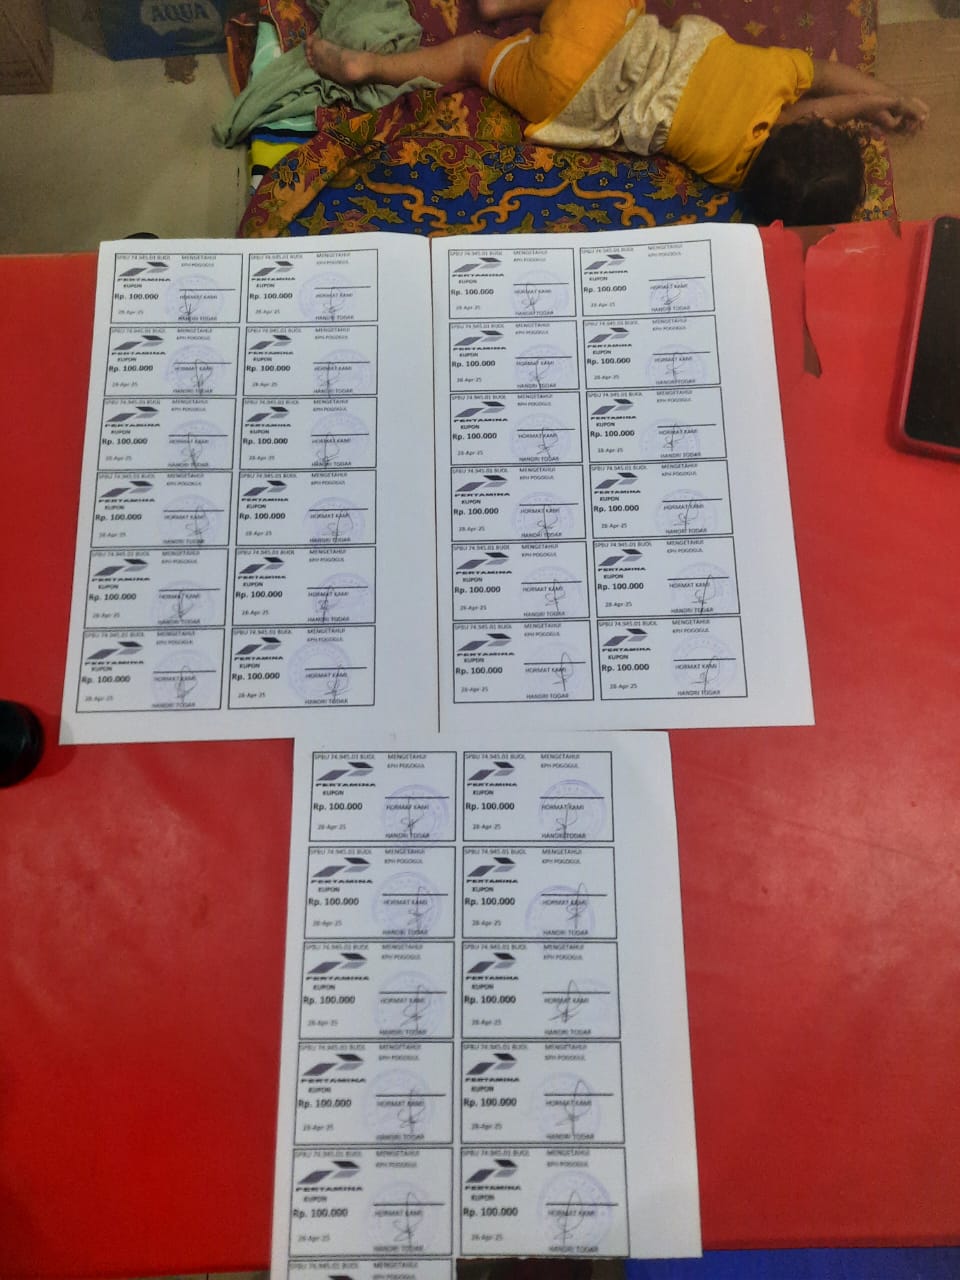 AQUA
SPBU 74.945.01 BUOL MENGETAHUI
KPH POGOGUL
PERTAMINA PERTAMINA
KUPON KUPON
Rp. 100.000 HORMAT KAMI Rp. 100.000 HORMAT KAMI
28-Apr-25 HANDRI TODAR 28-Apr-25 HANDRI TODAR
SPBU 74.945.01 BUOL MENGETAHUI SPBU 74.945.01 BUOL MENGETAHUI
KPH POGOGUL KPH POGOGUL
PERTAMINA PERTAMINA
KUPON KUPON
Rp. 100.000 HORMAT KAMI Rp. 100.000 HORMAT KAMI
28-Apr-25 HANDRI TODAR 28-Apr-25 HANDRI TODAR
SPBU 74.945.01 BUOL MENGETAHUI SPBU 74.945.01 BUOL MENGETAHUI
KPH POGOGUL KPH POGOGUL
PERTAMINA PERTAMINA
KUPON KUPON
Rp. 100.000 HORMAT KAMI Rp. 100.000 HORMAT KAMI
28-Apr-25 HANDRI TODAR 28-Apr-25 HANDRI TODAR
SPBU 74.945.01 BUOL MENGETAHUI SPBU 74.945.01 BUOL MENGETAHUI
KPH POGOGUL KPH POGOGUL
PERTAMINA PERTAMINA
KUPON KUPON
Rp. 100.000 HORMAT KAMI Rp. 100.000 HORMAT KAMI
28-Apr-25 HANDRI TODAR 28-Apr-25 HANDRI TODAR
SPBU 74.945.01 BUOL MENGETAHUI SPBU 74.945.01 BUOL MENGETAHUI
KPH POGOGUL KPH POGOGUL
PERTAMINA PERTAMINA
KUPON KUPON
Rp. 100.000 HORMAT KAMI Rp. 100.000 HORMAT KAMI
28-Apr-25 HANDRI TODAR 28-Apr-25 HANDRI TODAR
SPBU 74.945.01 BUOL MENGETAHUI SPBU 74.945.01 BUOL MENGETAHUI
KPH POGOGUL KPH POGOGUL
PERTAMINA PERTAMINA
KUPON KUPON
Rp. 100.000 HORMAT KAMI Rp. 100.000 HORMAT KAMI
28-Apr-25 HANDRI TODAR 28-Apr-25 HANDRI TODAR
SPBU 74.945.01 BUOL MENGETAHUI SPBU 74.945.01 BUOL MENGETAHUI
KPH POGOGUL KPH POGOGUL
PERTAMINA PERTAMINA
KUPON KUPON
Rp. 100.000 HORMAT KAMI Rp. 100.000 HORMAT KAMI
28-Apr-25 HANDRI TODAR 28-Apr-25 HANDRI TODAR
SPBU 74.945.01 BUOL MENGETAHUI SPBU 74.945.01 BUOL MENGETAHUI
KPH POGOGUL KPH POGOGUL
PERTAMINA PERTAMINA
KUPON KUPON
Rp. 100.000 HORMAT KAMI Rp. 100.000 HORMAT KAMI
28-Apr-25 HANDRI TODAR 28-Apr-25 HANDRI TODAR
SPBU 74.945.01 BUOL MENGETAHUI SPBU 74.945.01 BUOL MENGETAHUI
KPH POGOGUL KPH POGOGUL
PERTAMINA PERTAMINA
KUPON KUPON
Rp. 100.000 HORMAT KAMI Rp. 100.000 HORMAT KAMI
28-Apr-25 HANDRI TODAR 28-Apr-25 HANDRI TODAR
SPBU 74.945.01 BUOL MENGETAHUI SPBU 74.945.01 BUOL MENGETAHUI
KPH POGOGUL KPH POGOGUL
PERTAMINA PERTAMINA
KUPON KUPON
Rp. 100.000 HORMAT KAMI Rp. 100.000 HORMAT KAMI
28-Apr-25 HANDRI TODAR 28-Apr-25 HANDRI TODAR
SPBU 74.945.01 BUOL MENGETAHUI SPBU 74.945.01 BUOL MENGETAHUI
KPH POGOGUL KPH POGOGUL
PERTAMINA PERTAMINA
KUPON KUPON
Rp. 100.000 HORMAT KAMI Rp. 100.000 HORMAT KAMI
28-Apr-25 HANDRI TODAR 28-Apr-25 HANDRI TODAR
SPBU 74.945.01 BUOL MENGETAHUI SPBU 74.945.01 BUOL MENGETAHUI
KPH POGOGUL KPH POGOGUL
PERTAMINA PERTAMINA
KUPON KUPON
Rp. 100.000 HORMAT KAMI Rp. 100.000 HORMAT KAMI
28-Apr-25 HANDRI TODAR 28-Apr-25 HANDRI TODAR
SPBU 74.945.01 BUOL MENGETAHUI SPBU 74.945.01 BUOL MENGETAHUI
KPH POGOGUL KPH POGOGUL
PERTAMINA PERTAMINA
KUPON KUPON
Rp. 100.000 HORMAT KAMI Rp. 100.000 HORMAT KAMI
28-Apr-25 HANDRI TODAR 28-Apr-25 HANDRI TODAR
SPBU 74.945.01 BUOL MENGETAHUI SPBU 74.945.01 BUOL MENGETAHUI
KPH POGOGUL KPH POGOGUL
PERTAMINA PERTAMINA
KUPON KUPON
Rp. 100.000 HORMAT KAMI Rp. 100.000 HORMAT KAMI
28-Apr-25 HANDRI TODAR 28-Apr-25 HANDRI TODAR
SPBU 74.945.01 BUOL MENGETAHUI SPBU 74.945.01 BUOL MENGETAHUI
KPH POGOGUL KPH POGOGUL
PERTAMINA PERTAMINA
KUPON KUPON
Rp. 100.000 HORMAT KAMI Rp. 100.000 HORMAT KAMI
28-Apr-25 HANDRI TODAR 28-Apr-25 HANDRI TODAR
SPBU 74.945.01 BUOL MENGETAHUI SPBU 74.945.01 BUOL MENGETAHUI
KPH POGOGUL KPH POGOGUL
PERTAMINA PERTAMINA
KUPON KUPON
Rp. 100.000 HORMAT KAMI Rp. 100.000 HORMAT KAMI
28-Apr-25 HANDRI TODAR 28-Apr-25 HANDRI TODAR
SPBU 74.945.01 BUOL MENGETAHUI SPBU 74.945.01 BUOL MENGETAHUI
KPH POGOGUL KPH POGOGUL
PERTAMINA PERTAMINA
KUPON KUPON
Rp. 100.000 HORMAT KAMI Rp. 100.000 HORMAT KAMI
28-Apr-25 HANDRI TODAR 28-Apr-25 HANDRI TODAR
SPBU 74.945.01 BUOL MENGETAHUI
KPH POGOGUL